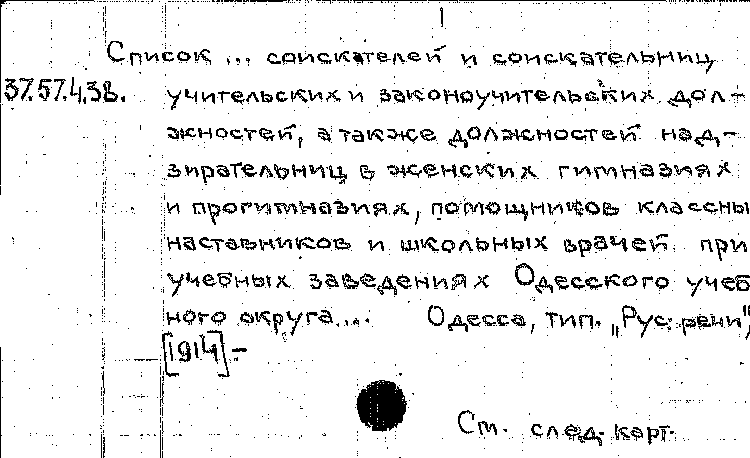 Список ... соискателей и соискательниц
37.57.4.38. учительских и законоучительских дол-
жностей, а также должностей над-
зирательниц в женских гимназиях
и прогимназиях, помощников классны
наставников и школьных врачей при
учебных заведениях Одесского учеб
ного округа... Одесса, тип. „Рус. речи",
[1914] -
См. след. карт.